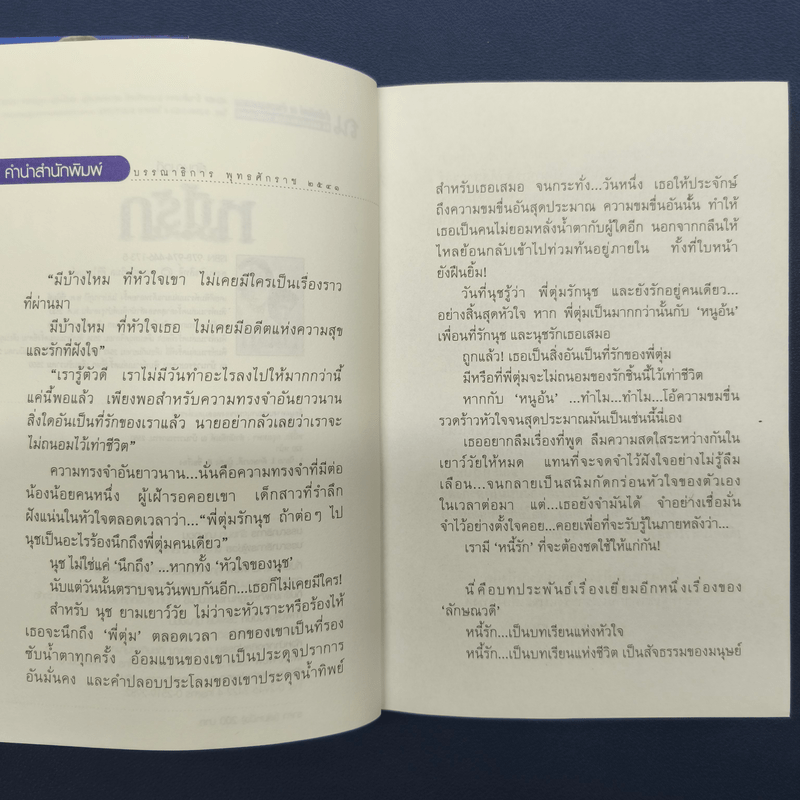 คำนำสำนักพิมพ์
บรรณาธิการ พุทธศักราช ๒๕๔๑
หนี้รัก
"มีบ้างไหม ที่หัวใจเขา ไม่เคยมีใครเป็นเรื่องราว
ที่ผ่านมา
มีบ้างไหม ที่หัวใจเธอ ไม่เคยมีอดีตแห่งความสุข
และรักที่ฝังใจ"
"เรารู้ตัวดี เราไม่มีวันทำอะไรลงไปให้มากกว่านี้
แค่นี้พอแล้ว เพียงพอสำหรับความทรงจำอันยาวนาน
สิ่งใดอันเป็นที่รักของเราแล้ว นายอย่ากลัวเลยว่าเราจะ
ไม่ถนอมไว้เท่าชีวิต"
ความทรงจำอันยาวนาน...นั่นคือความทรงจำที่มีต่อ
น้องน้อยคนหนึ่ง ผู้เฝ้ารอคอยเขา เด็กสาวที่รำลึก
ฝังแน่นในหัวใจตลอดเวลาว่า..."พี่ตุ่มรักนุช ถ้าต่อๆ ไป
นุชเป็นอะไรร้องนึกถึงพี่ตุ่มคนเดียว"
นุช ไม่ใช่แค่ 'นึกถึง' ...หากทั้ง 'หัวใจของนุช'
นับแต่วันนั้นตราบจนวันพบกันอีก...เธอก็ไม่เคยมีใคร!
สำหรับ นุช ยามเยาว์วัย ไม่ว่าจะหัวเราะหรือร้องไห้
เธอจะนึกถึง 'พี่ตุ่ม' ตลอดเวลา อกของเขาเป็นที่รอง
ซับน้ำตาทุกครั้ง อ้อมแขนของเขาเป็นประดุจปราการ
อันมั่นคง และคำปลอบประโลมของเขาประดุจน้ำทิพย์
สำหรับเธอเสมอ จนกระทั่ง...วันหนึ่ง เธอให้ประจักษ์
ถึงความขมขื่นอันสุดประมาณ ความขมขื่นอันนั้น ทำให้
เธอเป็นคนไม่ยอมหลั่งน้ำตากับผู้ใดอีก นอกจากกลืนให้
ไหลย้อนกลับเข้าไปท่วมท้นอยู่ภายใน ทั้งที่ใบหน้า
ยังฝืนยิ้ม!
วันที่นุชรู้ว่า พี่ตุ่มรักนุช และยังรักอยู่คนเดียว...
อย่างสิ้นสุดหัวใจ หาก พี่ตุ่มเป็นมากกว่านั้นกับ 'หนูอ้น'
เพื่อนที่รักนุช และนุชรักเธอเสมอ
ถูกแล้ว! เธอเป็นสิ่งอันเป็นที่รักของพี่ตุ่ม
มีหรือที่พี่ตุ่มจะไม่ถนอมของรักชิ้นนี้ไว้เท่าชีวิต
หากกับ 'หนูอ้น' ...ทำไม...ทำไม...โอ้ความขมขื่น
รวดร้าวหัวใจจนสุดประมาณมันเป็นเช่นนี้นี่เอง
เธออยากลืมเรื่องที่พูด ลืมความสดใสระหว่างกันใน
เยาว์วัยให้หมด แทนที่จะจดจำไว้ฝังใจอย่างไม่รู้ลืม
เลือน...จนกลายเป็นสนิมกัดกร่อนหัวใจของตัวเอง
ในเวลาต่อมา แต่...เธอยังจำมันได้ จำอย่างเชื่อมั่น
จำไว้อย่างตั้งใจคอย...คอยเพื่อที่จะรับรู้ในภายหลังว่า...
เรามี 'หนี้รัก' ที่จะต้องชดใช้ให้แก่กัน!
นี่คือบทประพันธ์เรื่องเยี่ยมอีกหนึ่งเรื่องของ
'ลักษณวดี'
หนี้รัก...เป็นบทเรียนแห่งหัวใจ
หนี้รัก...เป็นบทเรียนแห่งชีวิต เป็นสัจธรรมของมนุษย์